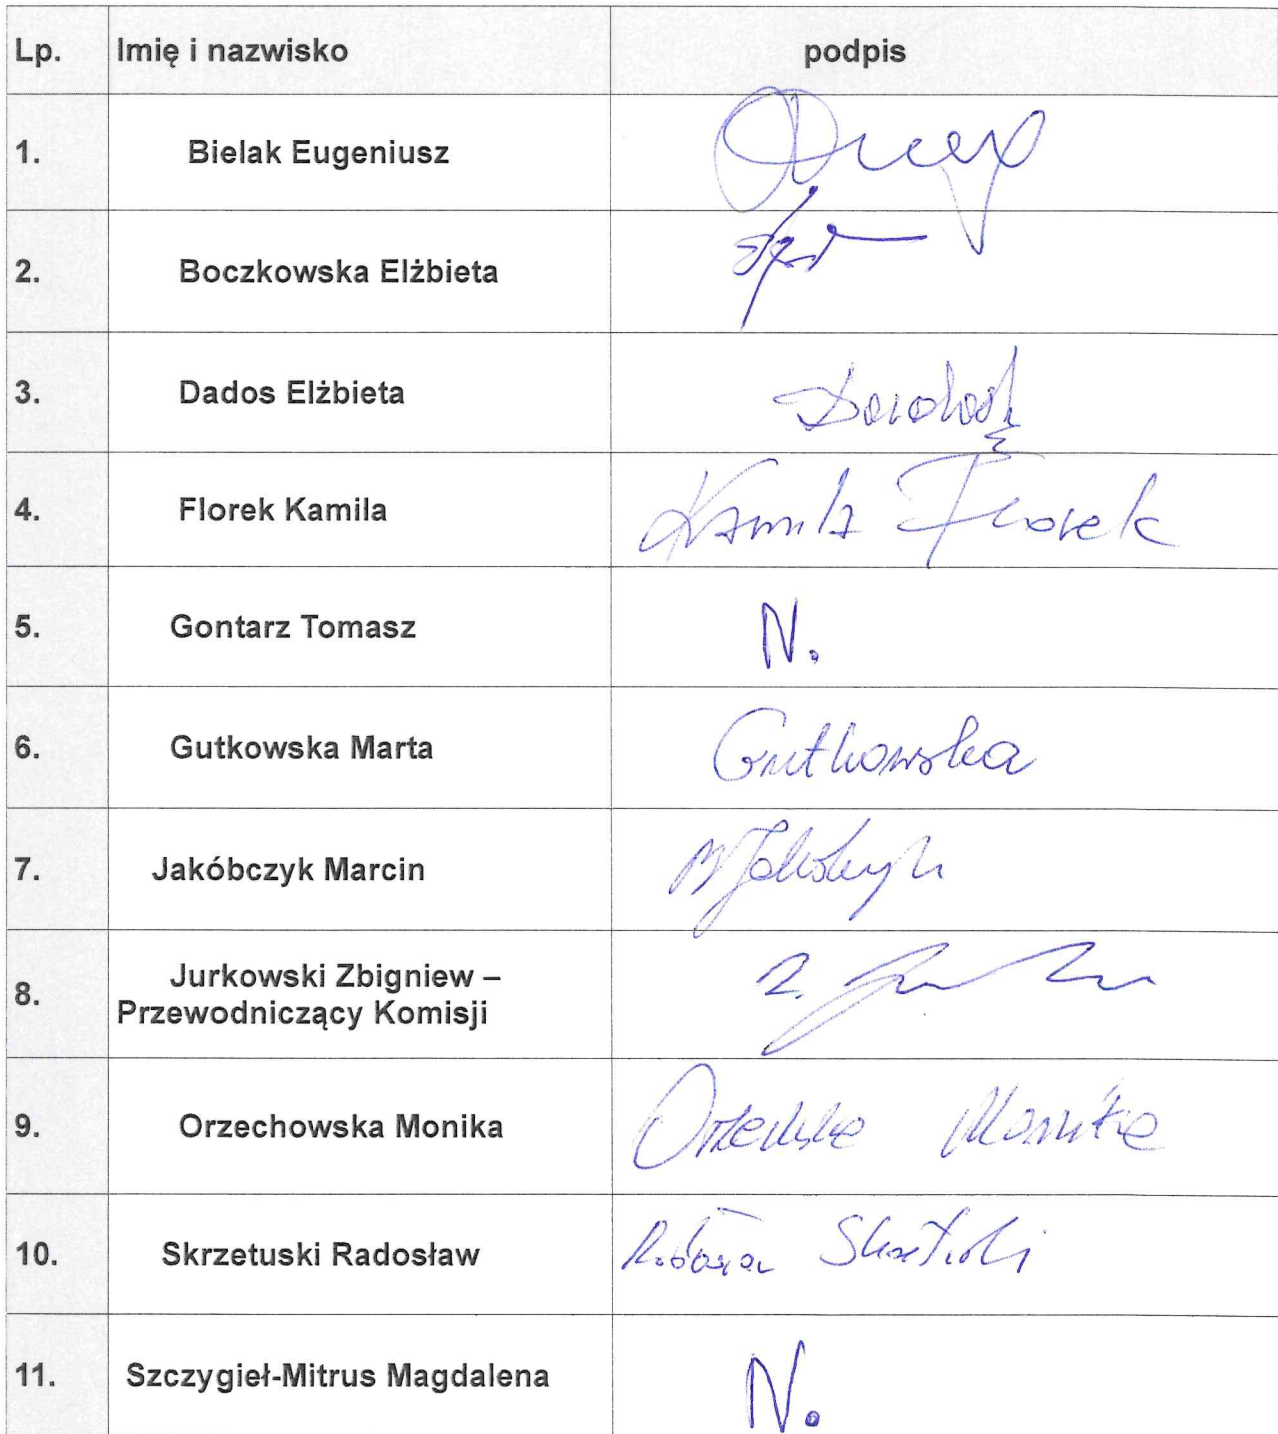 Lp. Imię i nazwisko podpis
1. Bielak Eugeniusz
2. Boczkowska Elżbieta
3. Dados Elżbieta
4. Florek Kamila Kamila Florek
5. Gontarz Tomasz N.
6. Gutkowska Marta Gutkowska
7. Jakóbczyk Marcin
8. Jurkowski Zbigniew –
Przewodniczący Komisji
9. Orzechowska Monika Monika
10. Skrzetuski Radosław
11. Szczygieł-Mitrus Magdalena N.